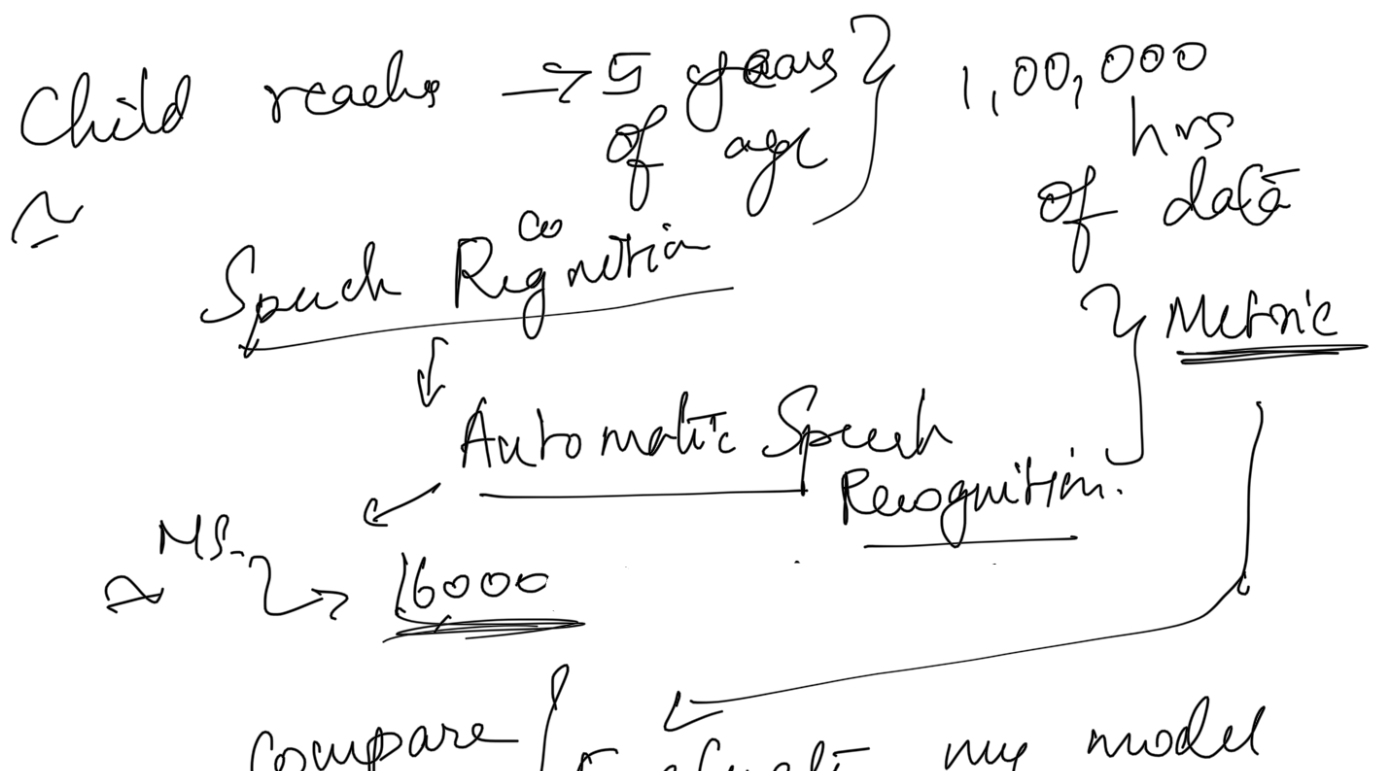 Child reaches → 5 years } 1,00,000
of age hrs
≃ of data
Speech Recognition
↓ } Metric
Automatic Speech
Recognition.
MS.
≃ → 16000
compare / my model